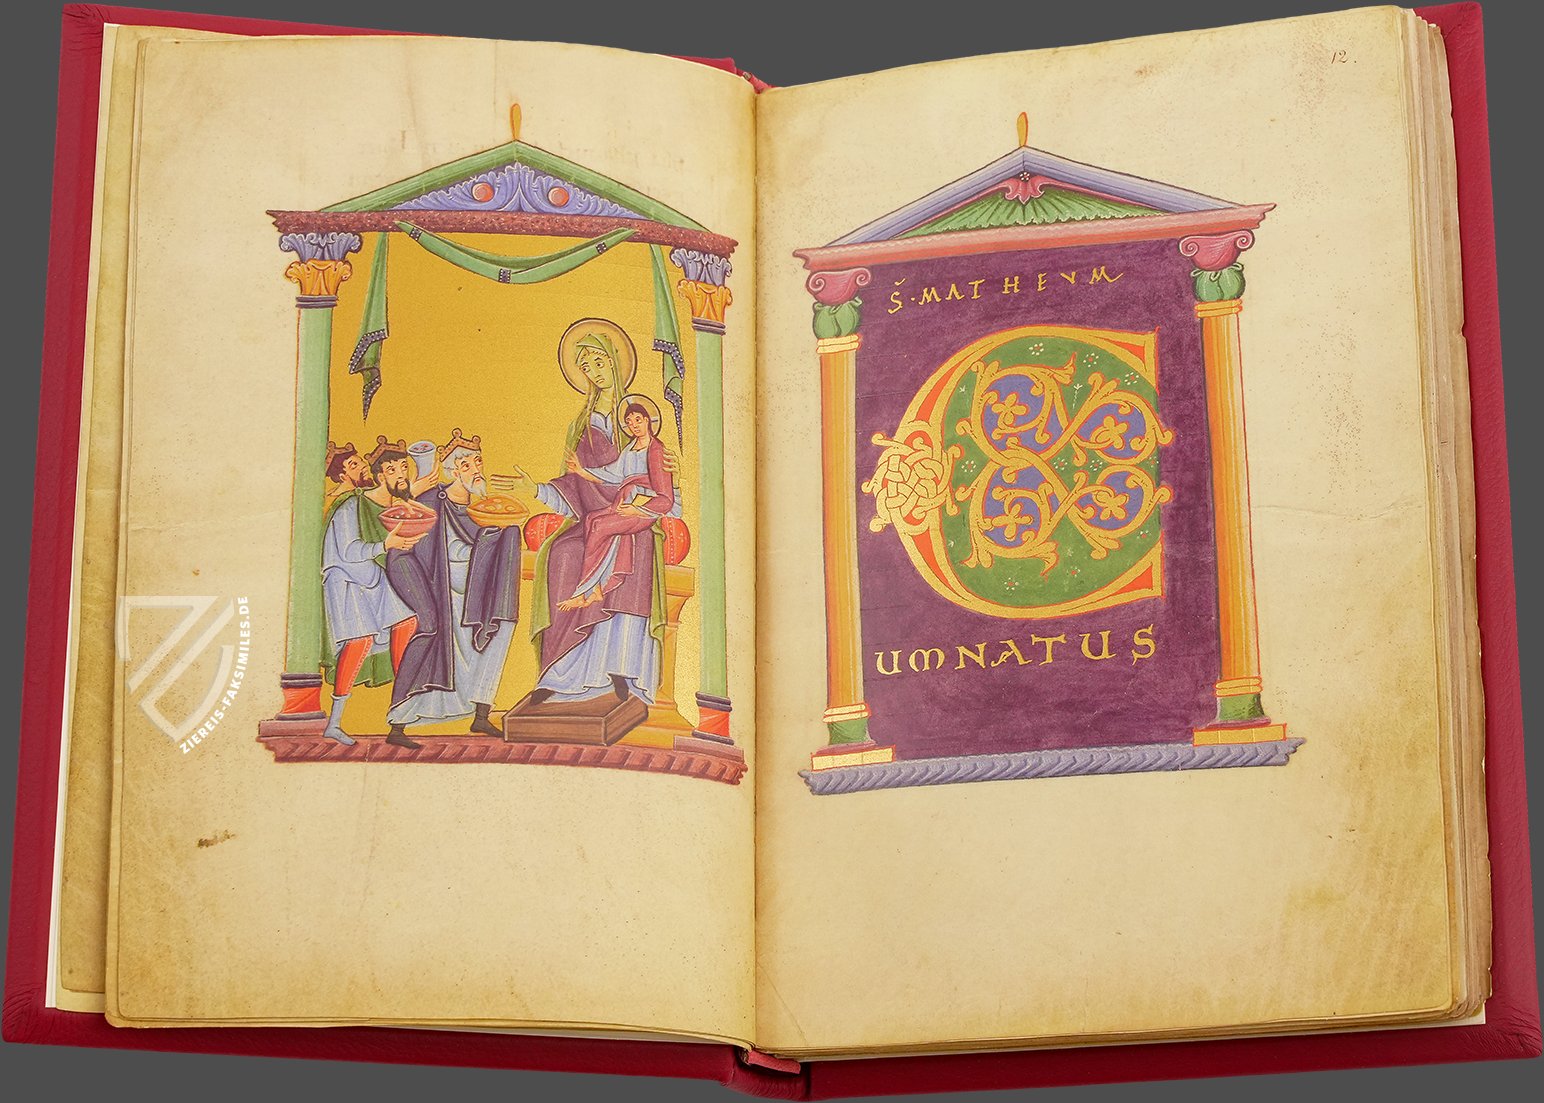 12.
S̆·MATHEVM
C
UMNATUS
ZIEREIS-FAKSIMILES.DE